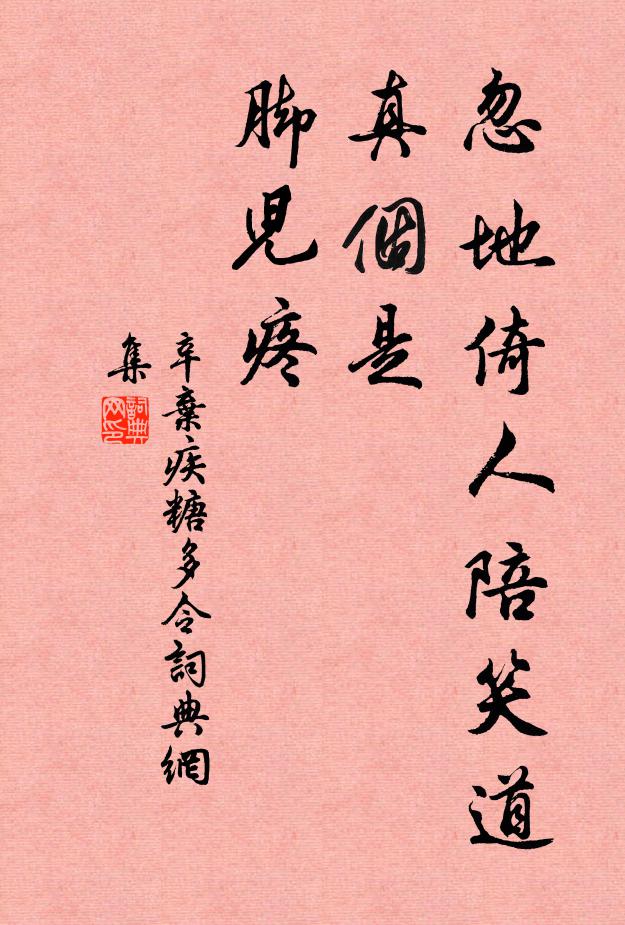 忽地倚人陪笑道
真個是
脚兒疼
辛棄疾糖多令詞典網
集
詞典
网印